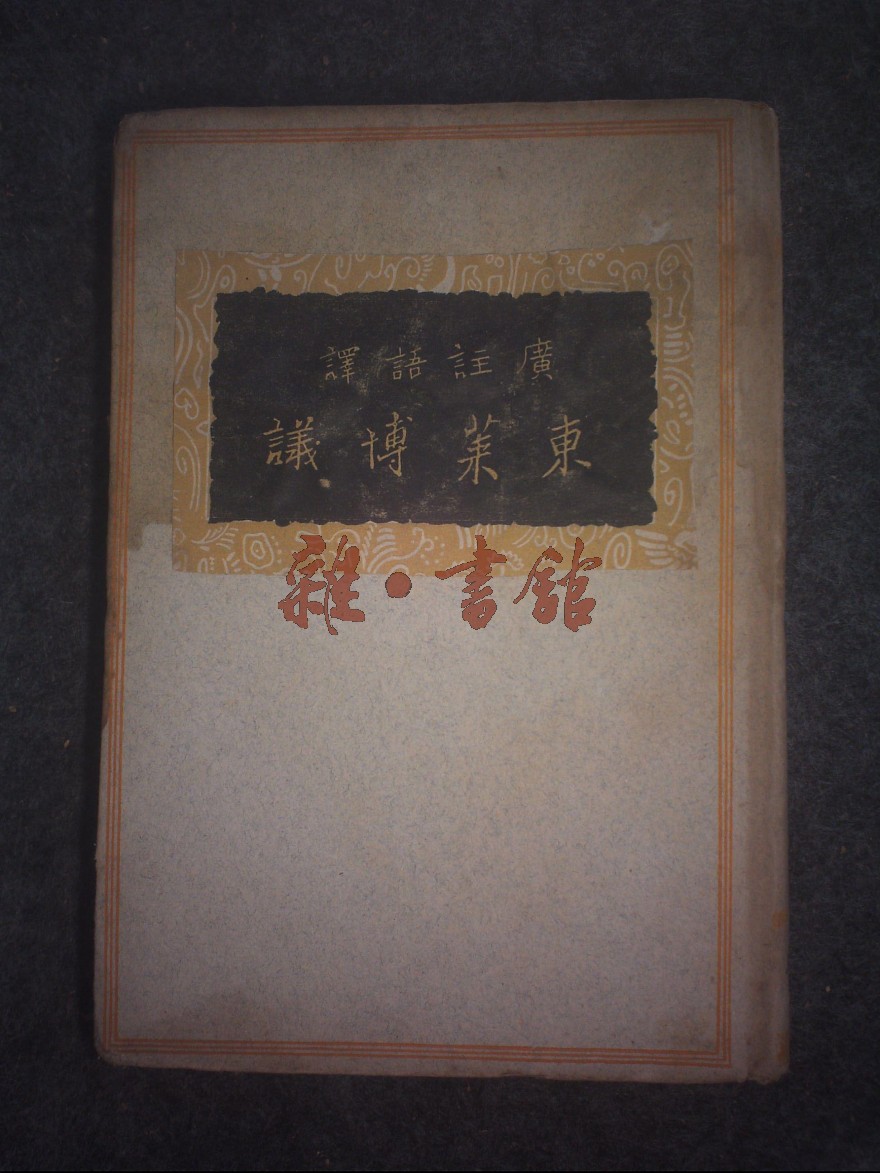 廣註語譯
東萊博議
雜·書館